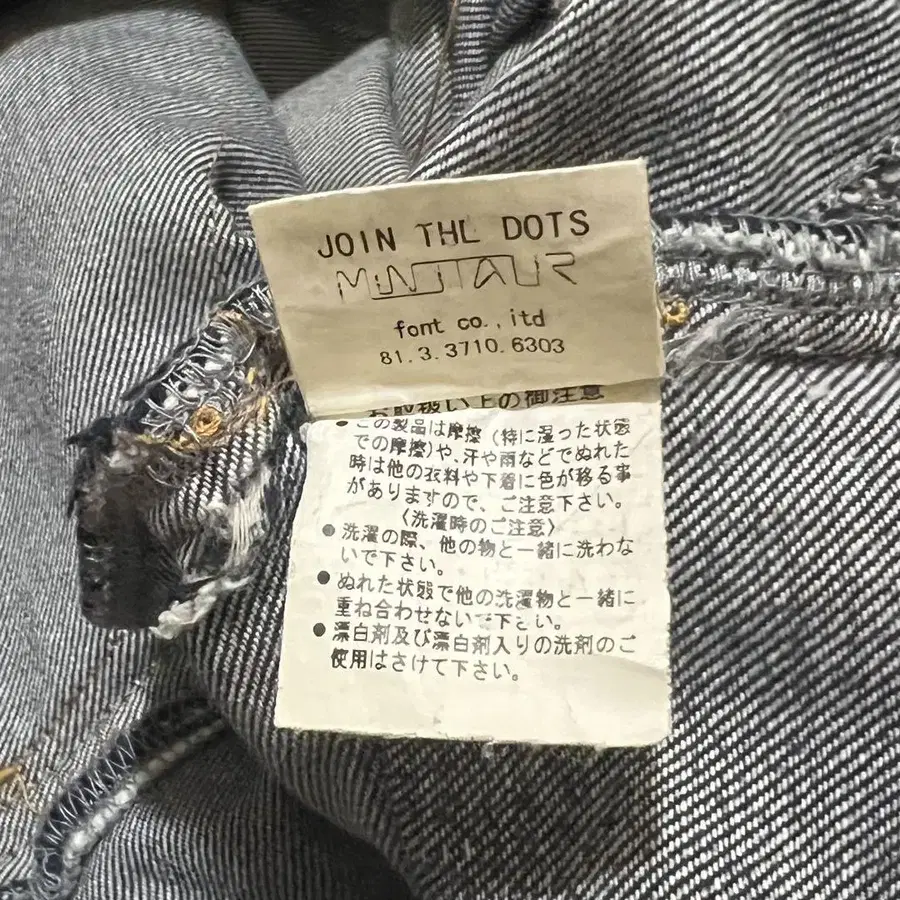 JOIN THL DOTS
MINOTAUR
font co., itd
81.3.3710.6303
お取扱い上の御注意
●この製品は摩擦(特に湿った状態
での摩擦)や、汗や雨などでぬれた
時は他の衣料や下着に色が移る事
がありますので、ご注意下さい。
〈洗濯時のご注意〉
●洗濯の際、他の物と一緒に洗わな
いで下さい。
●ぬれた状態で他の洗濯物と一緒に
重ね合わせないで下さい。
●漂白剤及び漂白剤入りの洗剤のご
使用はさけて下さい。